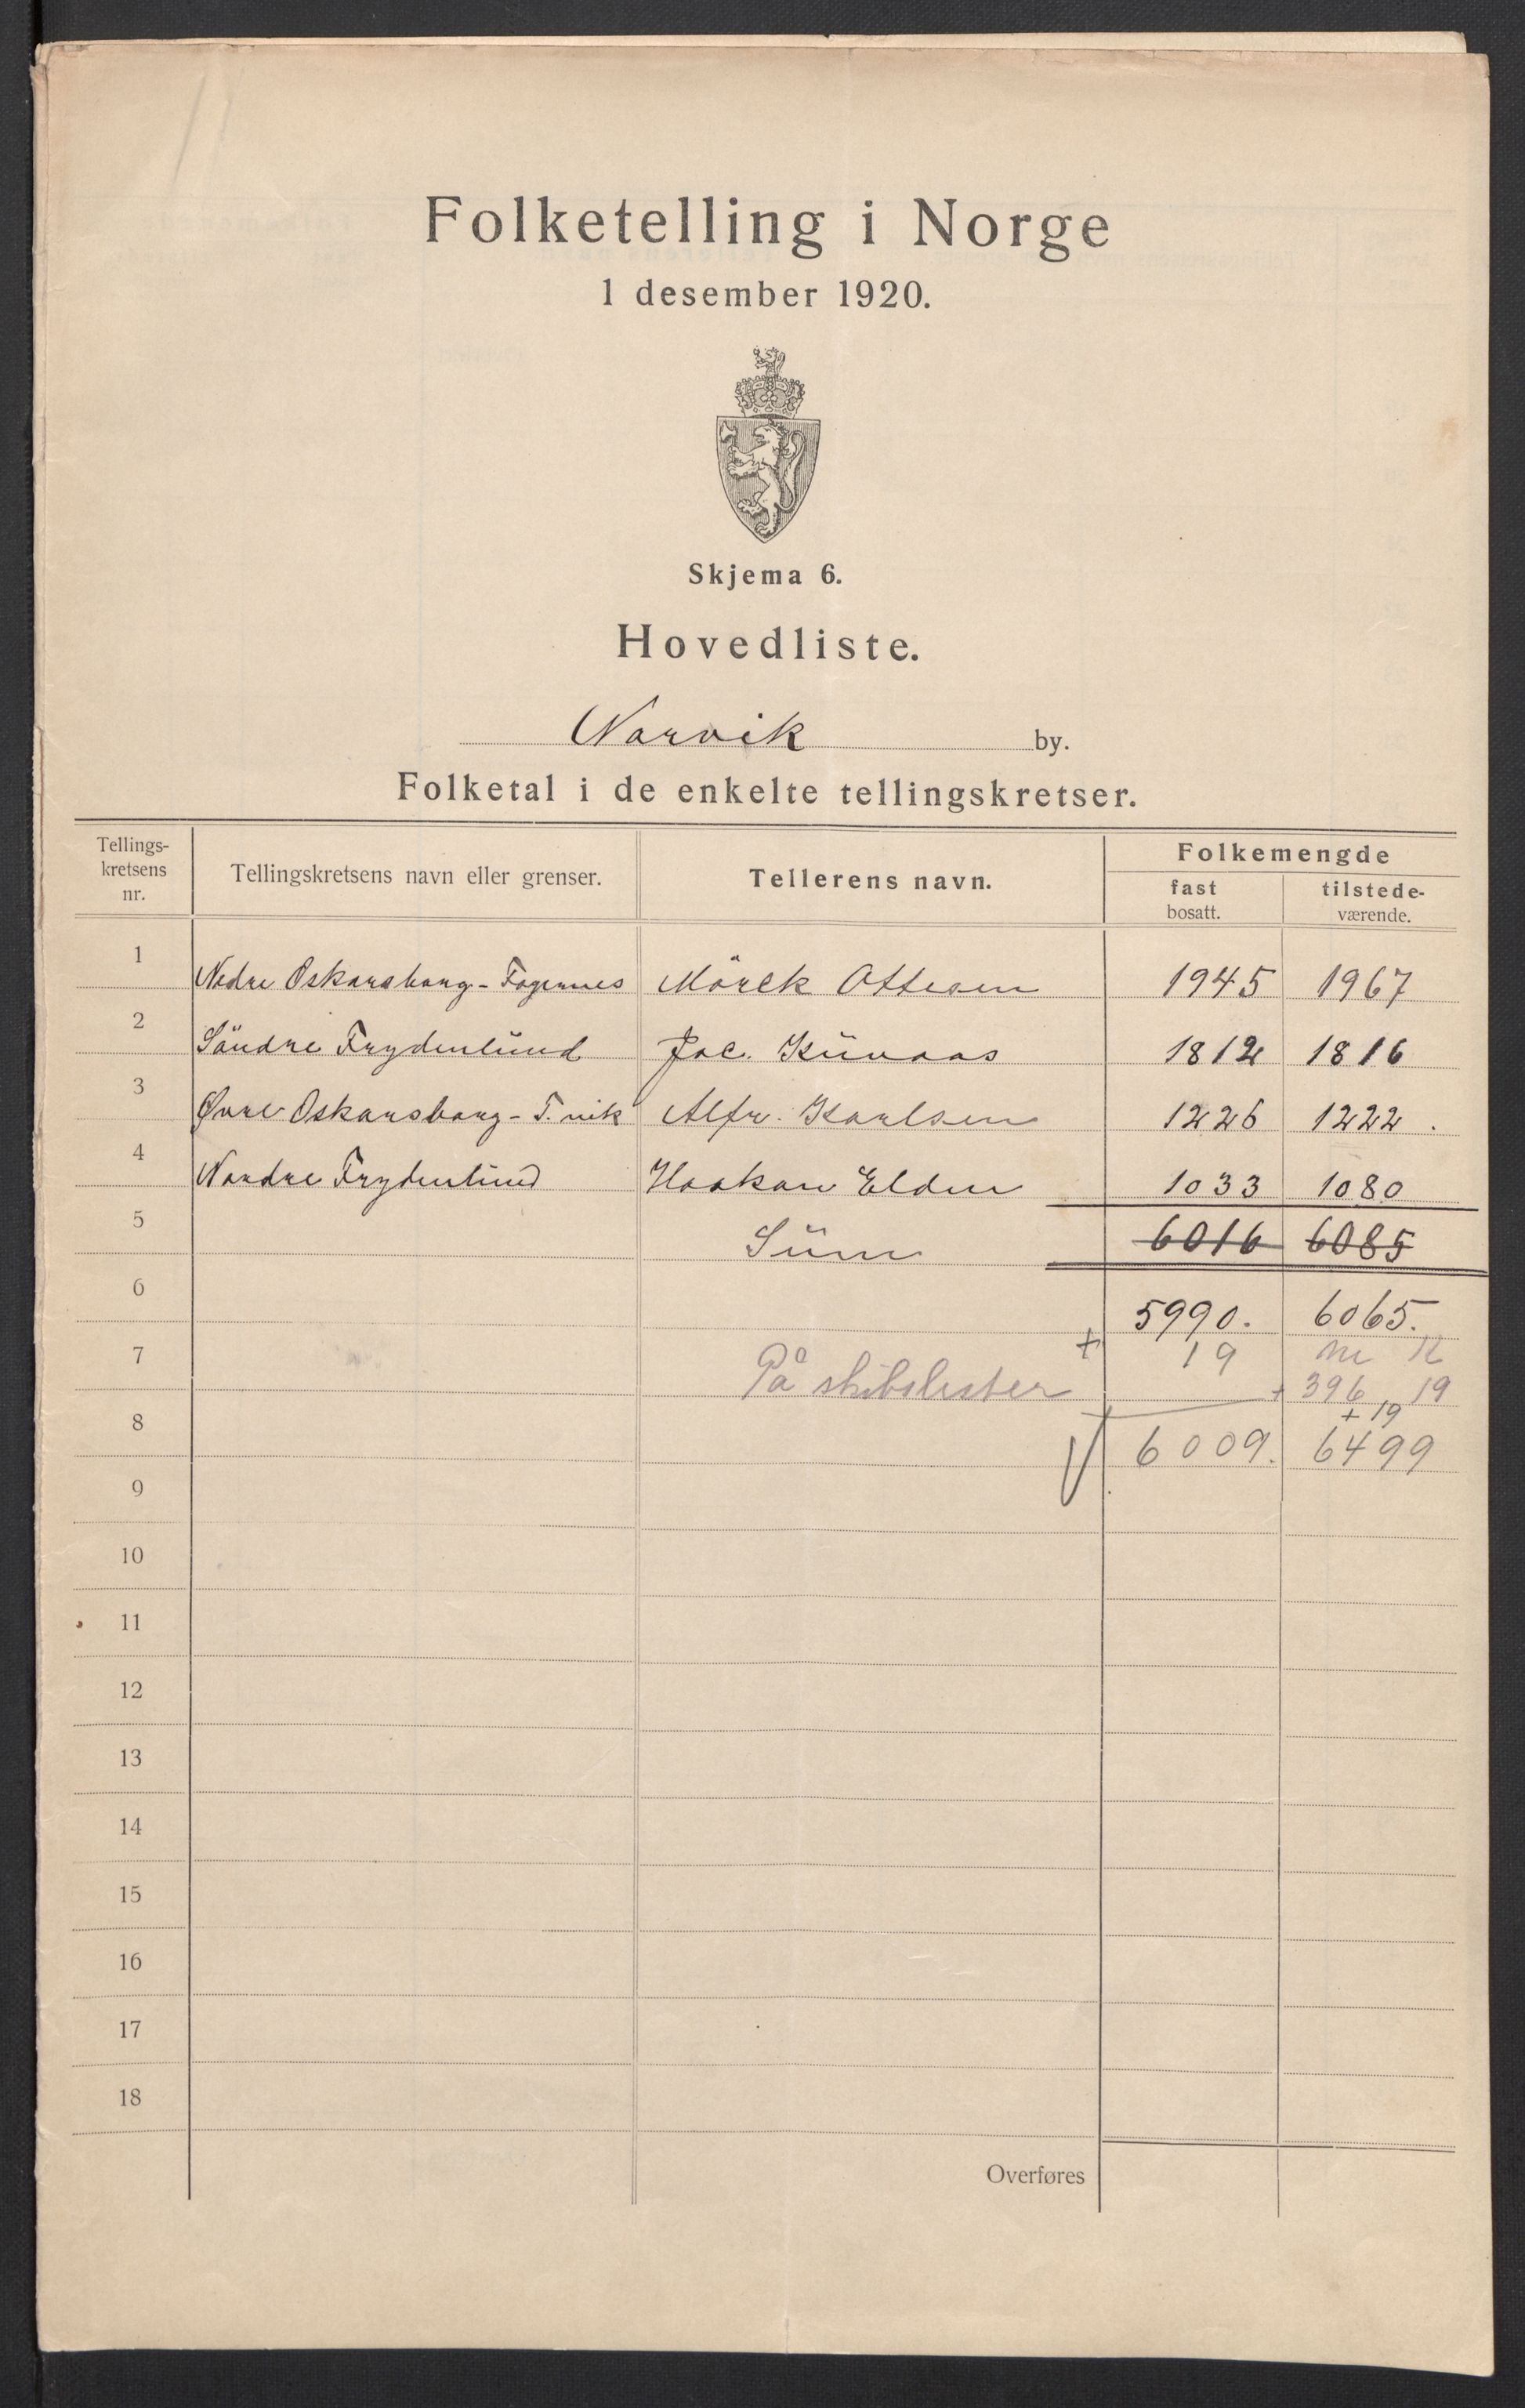 Folketelling i Norge
1 desember 1920.
Skjema 6.
Hovedliste.
Narvik by.
Folketal i de enkelte tellingskretser.
Tellings-
kretsens
nr.
Tellingskretsens navn eller grenser.
Tellerens navn.
Folkemengde
fast
bosatt.
tilstede-
værende.
1 Nedre Oskarsborg - Fagernes Mörck Ottesen 1945 1967
2 Söndre Frydenlund Jac. 1812 1816
3 Øvre Oskarsborg - T. vik Alfr. Karlsen 1226 1222.
4 Nordre Frydenlund Haakon Elden 1033 1080
5 Sum 6016 6085
6 5990. 6065.
7 + 19 m K
På skibslister + 396 19
+ 19
8 6009. 6499
9
10
11
12
13
14
15
16
17
18
Overføres